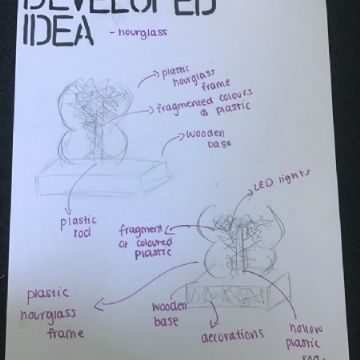 DEVELOPED
IDEA
- hourglass
plastic
hourglass
frame
fragmented colours
of plastic
wooden
base
plastic
rod
LED lights
fragment
of coloured
plastic
plastic
hourglass
frame
wooden
base
decorations
hollow
plastic
rod